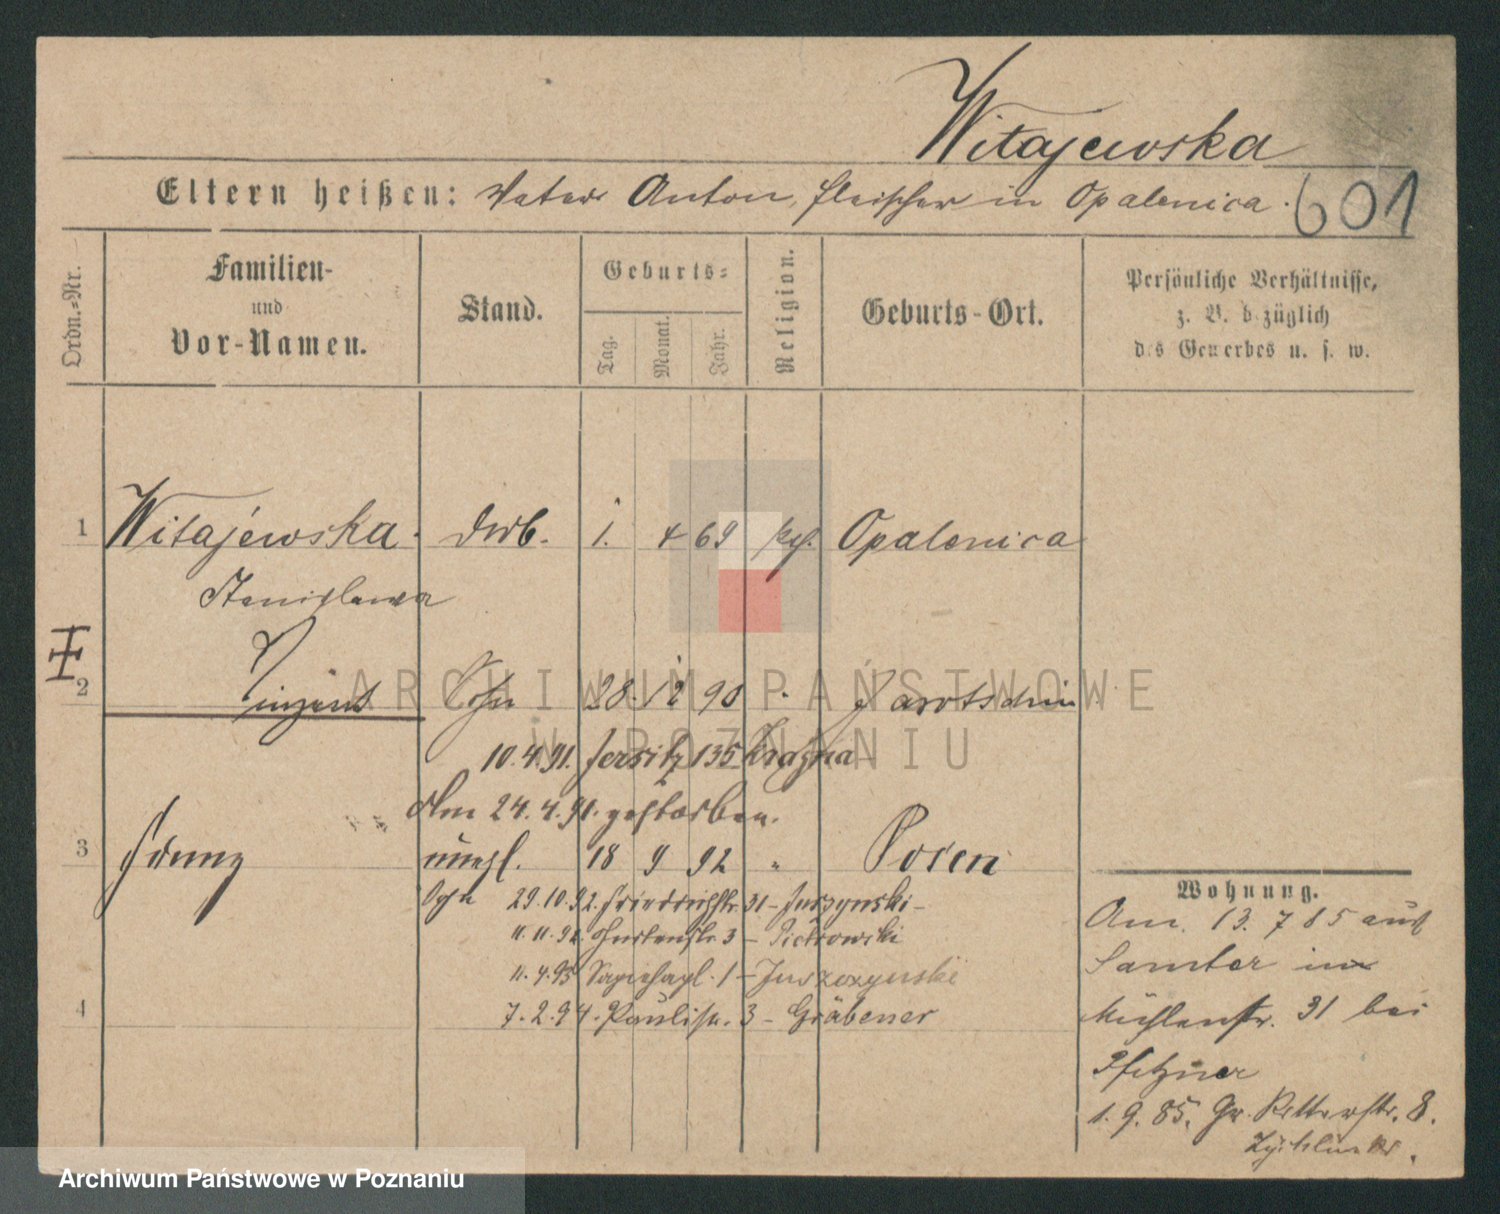 Witajewska
Eltern heißen: Vater Anton, Fleischer in Opalenica.
601
Ordn.-Nr.
Familien-
und
Vor-Namen.
Stand.
Geburts-
Tag.
Monat.
Jahr.
Religion.
Geburts-Ort.
Persönliche Verhältnisse,
z. B. bezüglich
des Gewerbes u. s. w.
1 Witajewska. 1. 4 69 Opalenica
Stanislawa
2 Vinzent Sohn 28. 12 90 " Jarotschin
10. 4. 91. Jersitz 135
Am 24. 4. 91. gestorben.
3 Franz unehl. 18 9 92 " Posen
Sohn 29. 10. 92. Friedrichstr. 31 - Juszynski -
11. 11. 92. Gartenstr. 3 - Piotrowski
11. 4. 93 Sapiehapl. 1 - Juszczynski
4 7. 2. 94. Paulistr. 3 - Gräbener
Wohnung.
Am. 13. 7 85 aus
Samter in
Mühlenstr. 31 bei
Pfitzner
1. 9. 85. Gr. Ritterstr. 8.
ARCHIWUM PAŃSTWOWE
W POZNANIU
Archiwum Państwowe w Poznaniu